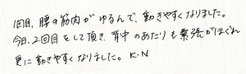 1回目、腰の筋肉がゆるんで、動きやすくなりました。
今日、2回目をして頂き、背中のあたりも緊張がほぐれ
更に動きやすくなりました。K.N